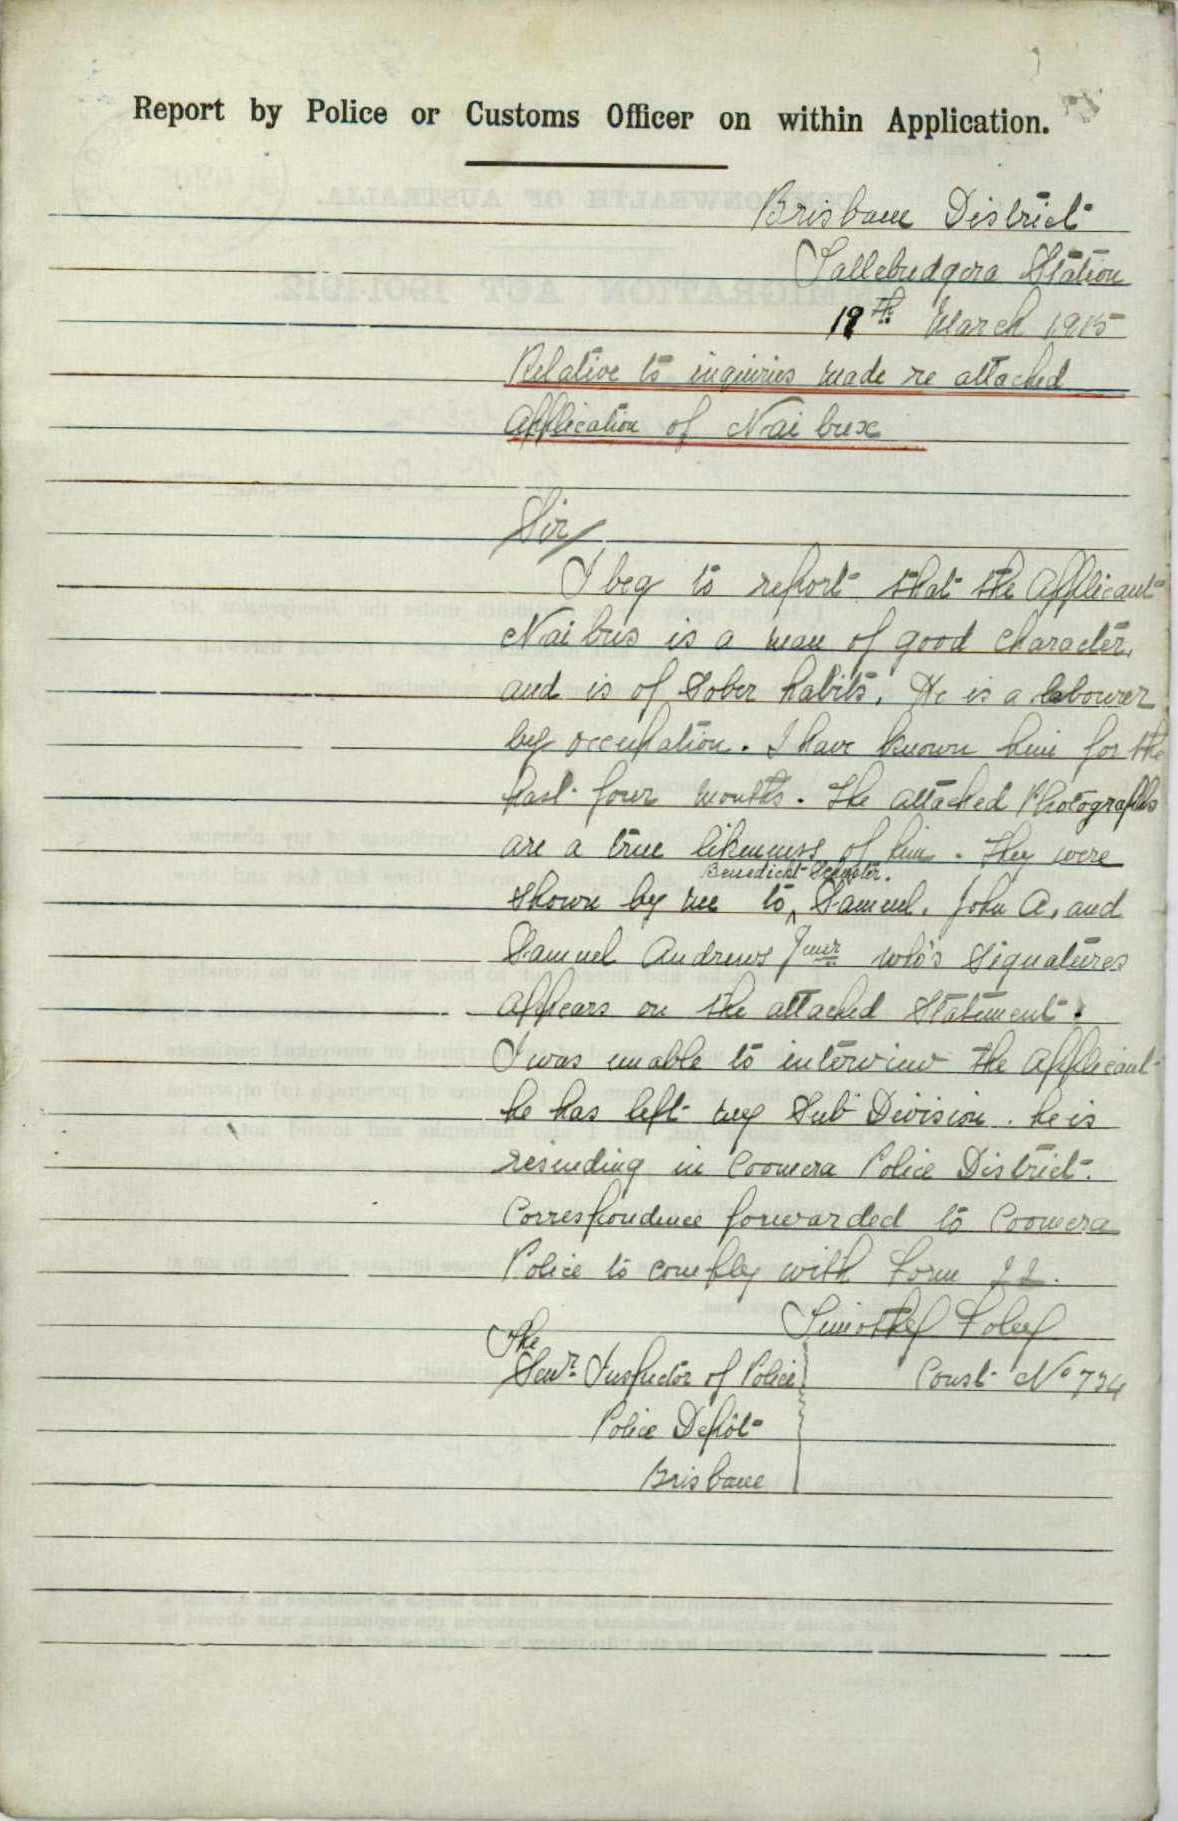 Report by Police or Customs Officer on within Application.
Brisbane District
Tallebudgera Station
19th March 1915
Relative to inquiries made re attached
Application of Nai bux
Sir/
I beg to report that the Applicant
Nai bus is a man of good character,
and is of Sober habits. He is a labourer
by occupation. I have known him for the
past four months. The attached Photographs
are a true likeness of him. They were
Benedickt Schuster.
Shown by me to Samuel. John A, and
Samuel Andrews Junr who's Signatures
Appears on the attached Statement.
I was unable to interview the Applicant
he has left my Sub Division. he is
resinding in Coomera Police District.
Correspondence forwarded to Coomera
Police to comply with Form 22.
Timothy Foley
Const No 724
The
Senr. Inspector of Police
Police Depôt
Brisbane